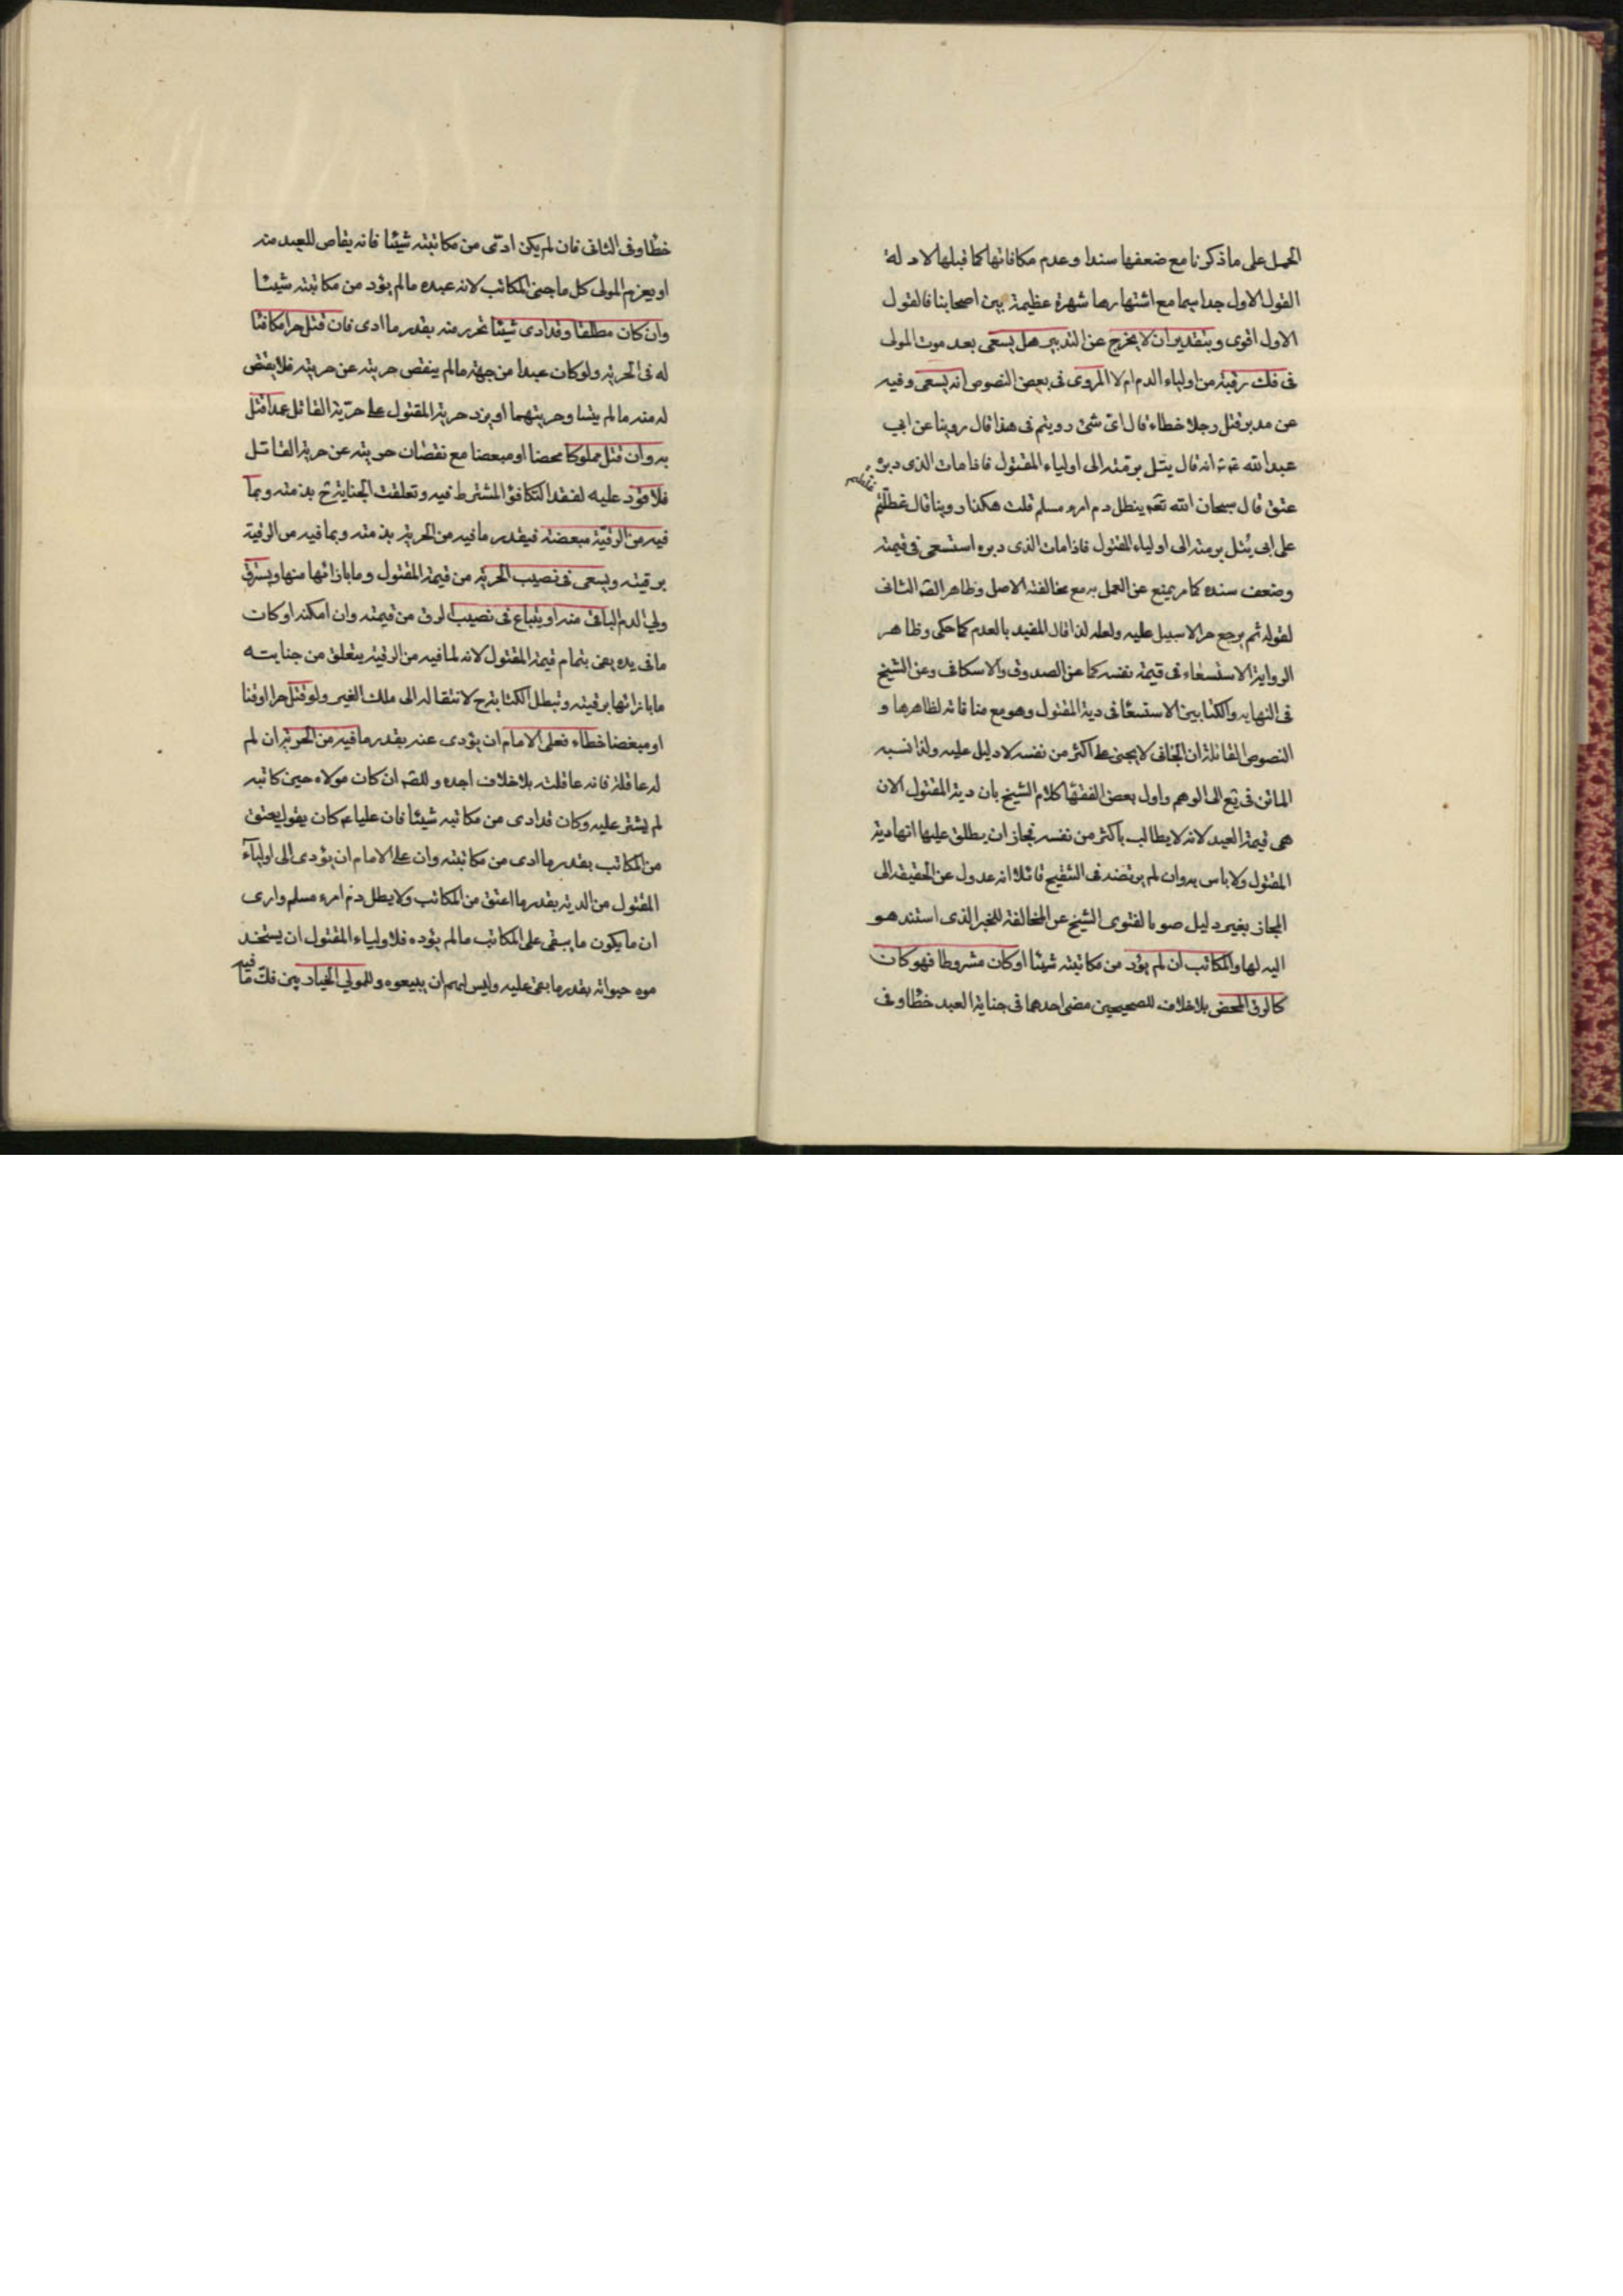 الحمل على ما ذكرنا مع ضعفها سندا وعدم مكافاتها كما قبلها لادلة
القول الاول جدا سيما مع اشتهارها شهرة عظيمة بين اصحابنا فالقول
الاول اقوى وبتقدير ان لا يخرج عن التدبير هل يسعى بعد موت المولى
فى فك رقبته من اولياء الدم ام لا المروى فى بعض النصوص انه يسعى وفيه
عن مدبر قتل رجلا خطاء قال اى شئ رويتم فى هذا قال روينا عن ابى
عبد الله انه قال يتل برمته الى اولياء المقتول فاذا مات الذى دبره
عتق قال سبحان الله فيطل دم امرء مسلم قلت هكذا روينا قال غلطتم
على ابى يُتل برمته الى اولياء المقتول فاذا مات الذى دبره استسعى فى قيمته
وضعف سنده كما مر يمنع عن العمل به مع مخالفته الاصل وظاهر الصـ الثانى
لقوله ثم يرجع حرا لا سبيل عليه ولعله لذا قال المفيد بالعدم كما حكى وظاهر
الرواية الاستسعاء فى قيمة نفسه كما عن الصدوق والاسكافى وعن الشيخ
فى النهايه والكتابين الاستسعا فى دية المقتول وهو مع منافاته لظاهرها و
النصوص القائلة ان الجانى لا يجنى على اكثر من نفسه لا دليل عليه ولذا نسبه
الماتن فى يع الى الوهم واول بعض الفقها كلام الشيخ بان دية المقتول الان
هى قيمة العبد لانه لا يطالب باكثر من نفسه فجاز ان يطلق عليها انها دية
المقتول ولا باس به وان لم يرتضه فى التنقيح قائلا انه عدول عن الحقيقه الى
المجاز بغير دليل صونا لفتوى الشيخ عن المخالفة للخبر الذى استند هو
اليه لها والمكاتب ان لم يؤد من مكاتبته شيئا او كان مشروطا فهو كان
كالرق المحض بلا خلاف للصحيحين مضى احدهما فى جناية العبد خطا وفى
خطا وفى الثانى فان لم يكن ادّى من مكاتبته شيئا فانه يقاص للعبد منه
او يغرم المولى كل ما جنى المكاتب لانه عبده ما لم يؤد من مكاتبته شيئا
وان كان مطلقا وقد ادى شيئا تحرر منه بقدر ما ادى فان قتل حرا مكافئا
له فى الحرية ولو كان عبدا من جهة ما لم ينقص حريته عن حريته فلا يقتص
له منه ما لم يتساو حريتهما او يزد حرية المقتول على حرّية القاتل عمدا قتل
به وان قتل مملوكا محضا او مبعضا مع نقصان حريته عن حرية القاتل
فلا قود عليه لفقد التكافؤ المشترط فيه وتعلقت الجناية ح بذمته وبما
فيه من الرقيّة مبعضة فبقدر ما فيه من الحرية بذمته وبما فيه من الرقية
برقيته ويسعى فى نصيب الحرية من قيمة المقتول وما بازائها منها ويسترق
ولي الدم الباقى منه او يباع فى نصيب الرق من قيمته وان امكنه او كان
ما فى يده يفى بتمام قيمة المقتول لانه لما فيه من الرقية يتعلق من جنايته
ما بازائها برقيته وتبطل الكتابة ح لانتقاله الى ملك الغير ولو قتل حرا او قنا
او مبعضا خطاء فعلى الامام ان يؤدى عنه بقدر ما فيه من الحرية ان لم
له عاقلة فانه عاقلته بلا خلاف اجده وللصـ ان كان مولاه حين كاتبه
لم يشترط عليه وكان قد ادى من مكاتبه شيئا فان عليا ع كان يقول يعتق
من المكاتب بقدر ما ادى من مكاتبته وان على الامام ان يؤدى الى اولياء
المقتول من الدية بقدر ما اعتق من المكاتب ولا يطل دم امرء مسلم وارى
ان ما يكون ما يبقى على المكاتب ما لم يؤده فلاولياء المقتول ان يستخد
موه حيواته بقدر ما بقى عليه وليس لهم ان يبيعوه وللمولي الخيار بين فك ما فيه